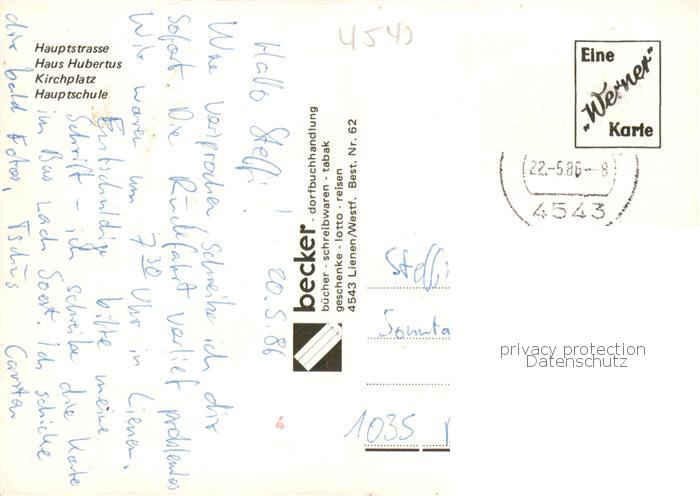 4543
Hauptstrasse
Haus Hubertus
Kirchplatz
Hauptschule
Hallo Steffi!
20.5.86
Wie versprochen schreibe ich dir
sofort. Die Rückfahrt verlief problemlos
Wir waren um 7 30 Uhr in Lienen.
Entschuldige bitte meine
Schrift - ich schreibe die Karte
im Bus nach Soest. Ich schicke
dir bald Fotos, Tschüs
Carsten
becker - dorfbuchhandlung
bücher - schreibwaren - tabak
geschenke - lotto - reisen
4543 Lienen/Westf. Best. Nr. 62
Eine
„Werner"
Karte
22.-5.86-8
4543
Steffi
Sonnta
1035
privacy protection
Datenschutz